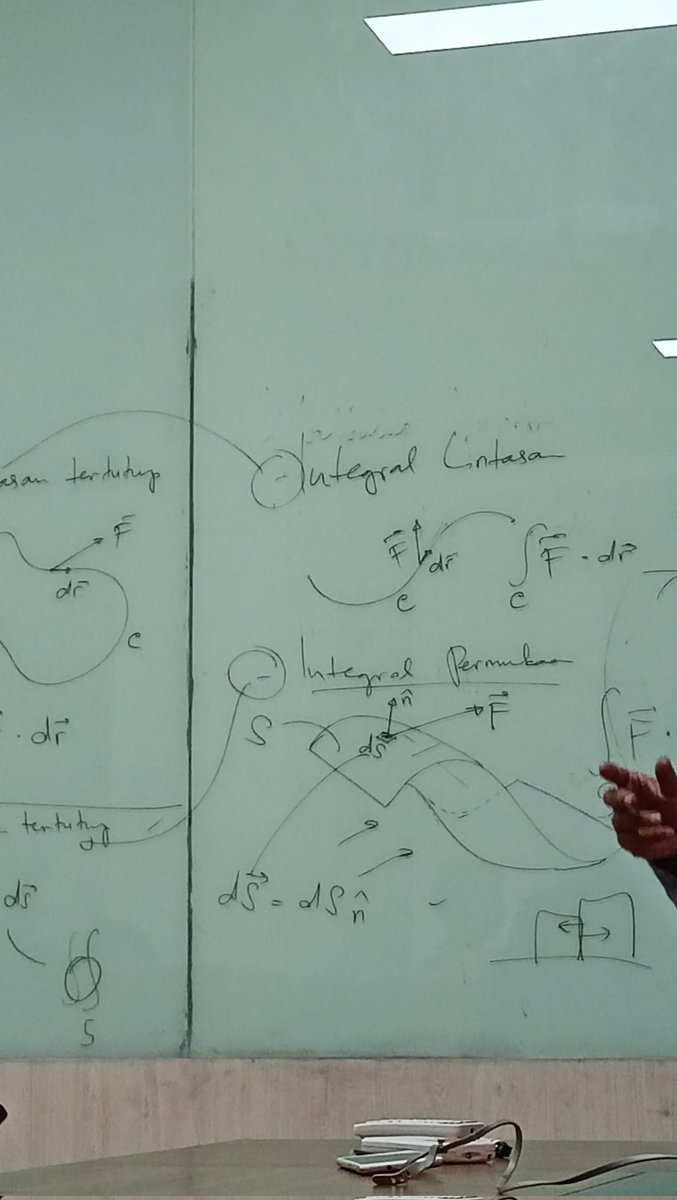 tertutup
F⃗
dr⃗
C
· dr⃗
tertutup
ds⃗
∮
S
Integral Lintasan
F⃗
dr⃗
C
∫ F⃗ · dr⃗
C
Integral Permukaan
S
n̂
F⃗
ds⃗
∫ F⃗ ·
dS⃗ = dS n̂